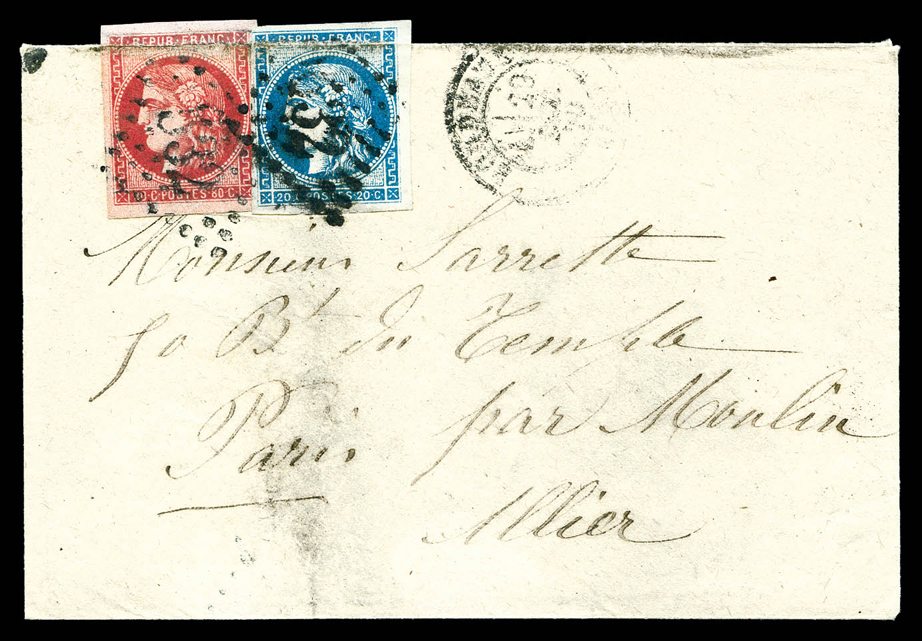 REPUB·FRANC·
REPUB·FRANC·
80·C POSTES·80·C
20·C·POSTES·20·C
Monsieur Sarrette
50 Bt du Temple
Paris par Moulin
Allier